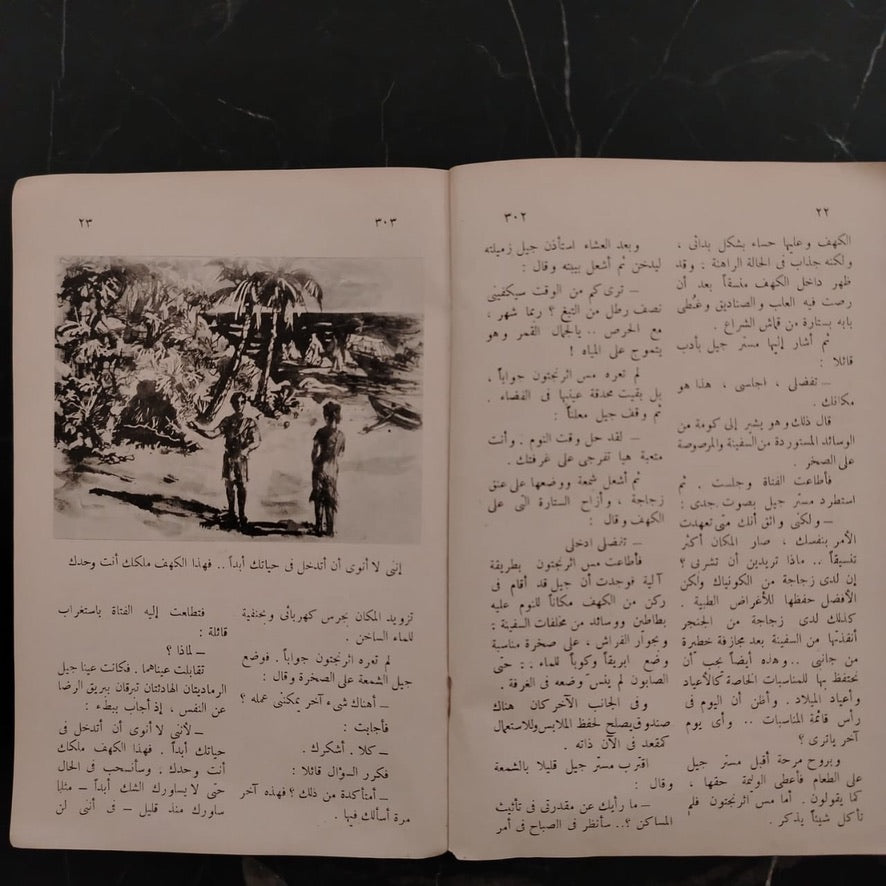 ٢٢
٣٠٢
الكهف وعليها حساء بشكل بدائى ،
ولكنه جذاب فى الحالة الراهنة ؛ وقد
ظهر داخل الكهف منسقاً بعد أن
رصت فيه العلب والصناديق وغُطى
بابه بستارة من قماش الشراع .
ثم أشار إليها مستر جيل بأدب
قائلا :
ــ تفضلى ، اجلسى ، هذا هو
مكانك .
قال ذلك وهو يشير إلى كومة من
الوسائد المستوردة من السفينة والمرصوصة
على الصخر .
فأطاعت الفتاة وجلست . ثم
استطرد مستر جيل بصوت جدى :
ــ ولكنى واثق أنك متى تعهدت
الأمر بنفسك ، صار المكان أكثر
تنسيقاً .. ماذا تريدين أن تشربى ؟
إن لدى زجاجة من الكونياك ولكن
الأفضل حفظها للأغراض الطبية .
كذلك لدى زجاجة من الجنجر
أنقذتها من السفينة بعد مجازفة خطيرة
من جانبى .. وهذه أيضاً يجب أن
نحتفظ بها للمناسبات الخاصة كالأعياد
وأعياد الميلاد . وأظن أن اليوم فى
رأس قائمة المناسبات .. وأى يوم
آخر ياترى ؟
وبروح مرحة أقبل مستر جيل
على الطعام فأعطى الوليمة حقها ،
كما يقولون . أما مس اثرنجتون فلم
تأكل شيئاً يذكر .
وبعد العشاء استأذن جيل زميلته
ليدخن ثم أشعل بيبته وقال :
ــ ترى كم من الوقت سيكفينى
نصف رطل من التبغ ؟ ربما شهر ،
مع الحرص .. يالجمال القمر وهو
يتموج على المياه !
لم تعره مس اثرنجتون جواباً ،
بل بقيت محدقة عينيها فى الفضاء .
ثم وقف جيل معلناً :
ــ لقد حل وقت النوم . وأنت
متعبة هيا تفرجى على غرفتك .
ثم أشعل شمعة ووضعها على عنق
زجاجة ، وأزاح الستارة التى على
الكهف وقال :
ــ تفضلى ادخلى .
فأطاعت مس اثرنجتون بطريقة
آلية فوجدت أن جيل قد أقام فى
ركن من الكهف مكاناً للنوم عليه
بطاطين ووسائد من مخلفات السفينة ؛
وبجوار الفراش ، على صخرة مناسبة
وضع ابريقاً وكوباً للماء .. حتى
الصابون لم ينس وضعه فى الغرفة .
وفى الجانب الآخر كان هناك
صندوق يصلح لحفظ الملابس وللاستعمال
كمقعد فى الآن ذاته .
اقترب مستر جيل قليلا بالشمعة
وقال :
ــ ما رأيك عن مقدرتى فى تأثيث
المساكن ؟.. سأنظر فى الصباح فى أمر
٣٠٣
٢٣
إننى لا أنوى أن أتدخل فى حياتك أبداً .. فهذا الكهف ملكك أنت وحدك
تزويد المكان بجرس كهربائى وبحنفية
للماء الساخن .
لم تعره اثرنجتون جواباً . فوضع
جيل الشمعة على الصخرة وقال :
ــ أهناك شىء آخر يمكننى عمله ؟
فأجابت :
ــ كلا . أشكرك .
فكرر السؤال قائلا :
ــ أمتأكدة من ذلك ؟ فهذه آخر
مرة أسألك فيها .
فتطلعت إليه الفتاة باستغراب
قائلة :
ــ لماذا ؟
تقابلت عيناهما . فكانت عينا جيل
الرماديتان الهادئتان تبرقان ببريق الرضا
عن النفس ، إذ أجاب ببطء :
ــ لأننى لا أنوى أن أتدخل فى
حياتك أبداً . فهذا الكهف ملكك
أنت وحدك ، وسأنسحب فى الحال
حتى لا يساورك الشك أبداً ــ مثلما
ساورك منذ قليل ــ فى أننى لن